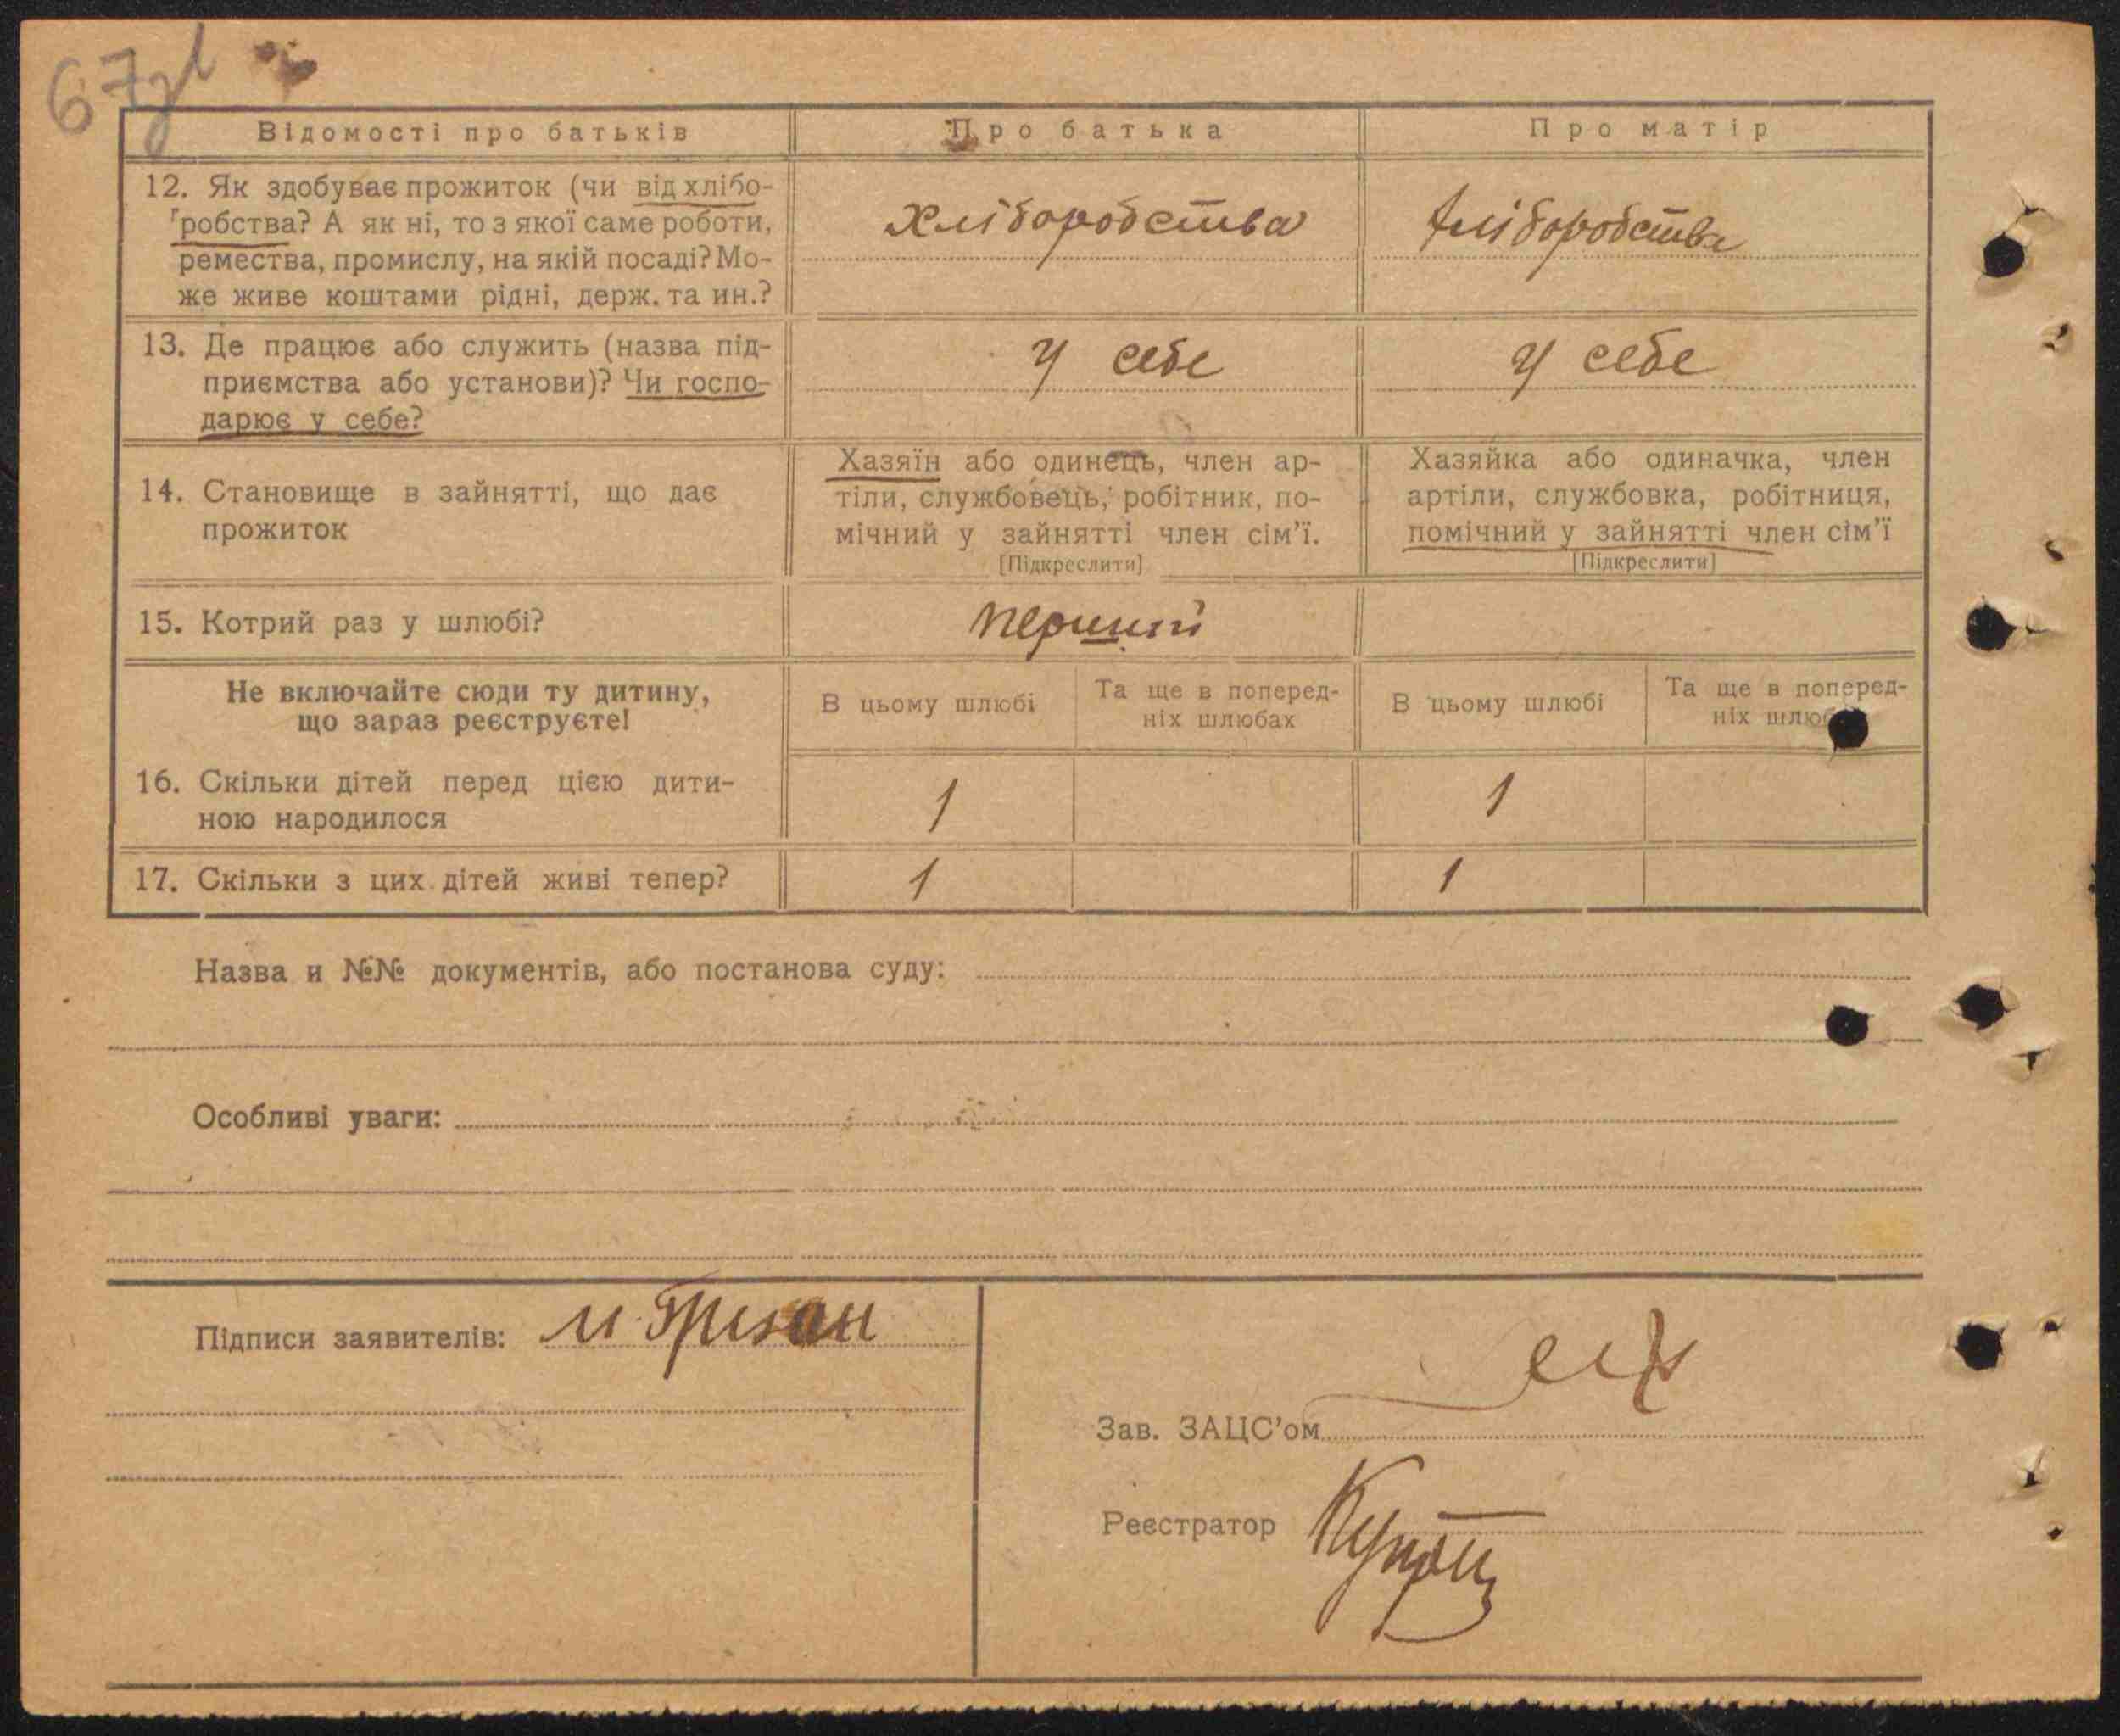 67зв
Відомості про батьків
Про батька
Про матір
12. Як здобуває прожиток (чи від хлібо-
робства? А як ні, то з якої саме роботи,
ремества, промислу, на якій посаді? Мо-
же живе коштами рідні, держ. та ин.?
хліборобства
хліборобства
13. Де працює або служить (назва під-
приємства або установи)? Чи госпо-
дарює у себе?
У себе
У себе
14. Становище в зайнятті, що дає
прожиток
Хазяїн або одинець, член ар-
тіли, службовець, робітник, по-
мічний у зайнятті член сім'ї.
[Підкреслити]
Хазяйка або одиначка, член
артіли, службовка, робітниця,
помічний у зайнятті член сім'ї
[Підкреслити]
15. Котрий раз у шлюбі?
перший
Не включайте сюди ту дитину,
що зараз реєструєте!
В цьому шлюбі
Та ще в поперед-
ніх шлюбах
В цьому шлюбі
Та ще в поперед-
ніх
16. Скільки дітей перед цією дити-
ною народилося
1
1
17. Скільки з цих дітей живі тепер?
1
1
Назва и №№ документів, або постанова суду:
Особливі уваги:
Підписи заявителів: М.
Зав. ЗАЦС'ом
Реєстратор